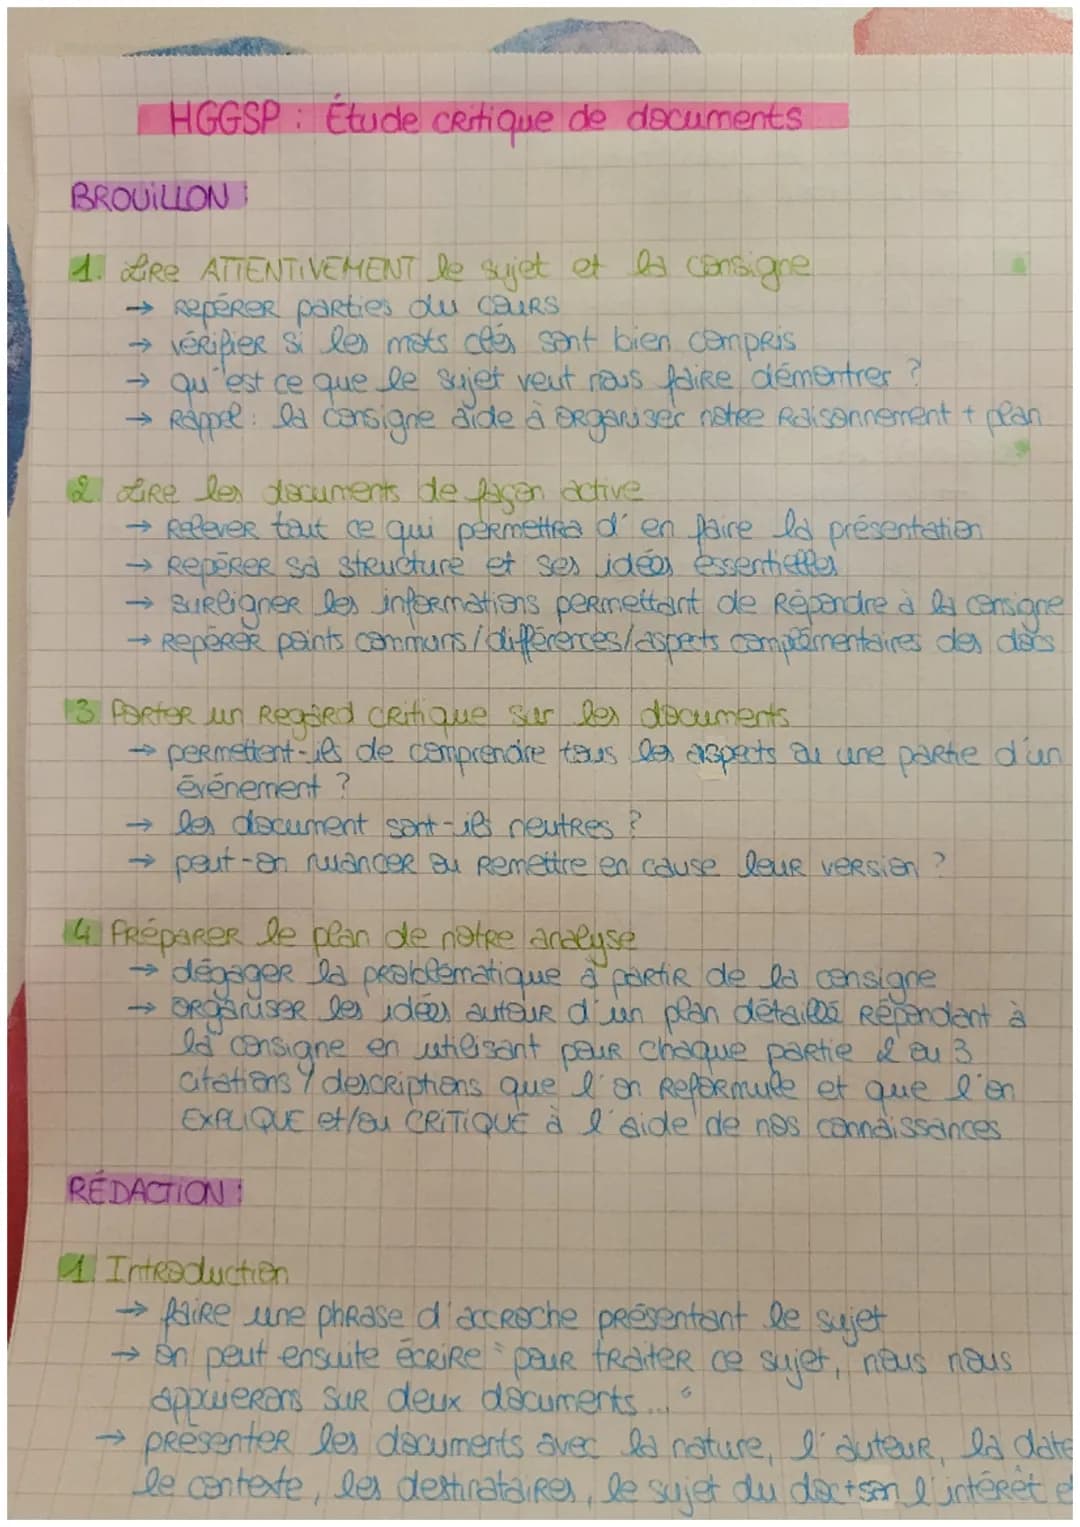 HGGSP : Étude critique de documents
BROUILLON :
1. Lire ATTENTIVEMENT le sujet et la consigne
→ repérer parties du cours
→ vérifier si les mots clés sont bien compris
→ qu'est ce que le sujet veut nous faire démontrer ?
→ Rappel : la consigne aide à organiser notre raisonnement + plan
2. Lire les documents de façon active
→ Relever tout ce qui permettra d'en faire la présentation
→ Repérer sa structure et ses idées essentielles
→ surligner les informations permettant de répondre à la consigne
→ Repérer points communs/différences/aspects complémentaires des docs
3 Porter un regard critique sur les documents
→ permettent-ils de comprendre tous les aspects ou une partie d'un
événement ?
→ les document sont-ils neutres ?
→ peut-on nuancer ou remettre en cause leur version ?
4 Préparer le plan de notre analyse
→ dégager la problématique à partir de la consigne
→ organiser les idées autour d'un plan détaillé répondant à
la consigne en utilisant pour chaque partie 2 ou 3
citations / descriptions que l'on reformule et que l'on
EXPLIQUE et/ou CRITIQUE à l'aide de nos connaissances
RÉDACTION :
1. Introduction
→ faire une phrase d'accroche présentant le sujet
→ on peut ensuite écrire " pour traiter ce sujet, nous nous
appuierons sur deux documents... "
→ présenter les documents avec la nature, l'auteur, la date
le contexte, les destinataires, le sujet du doc + son l'intérêt e